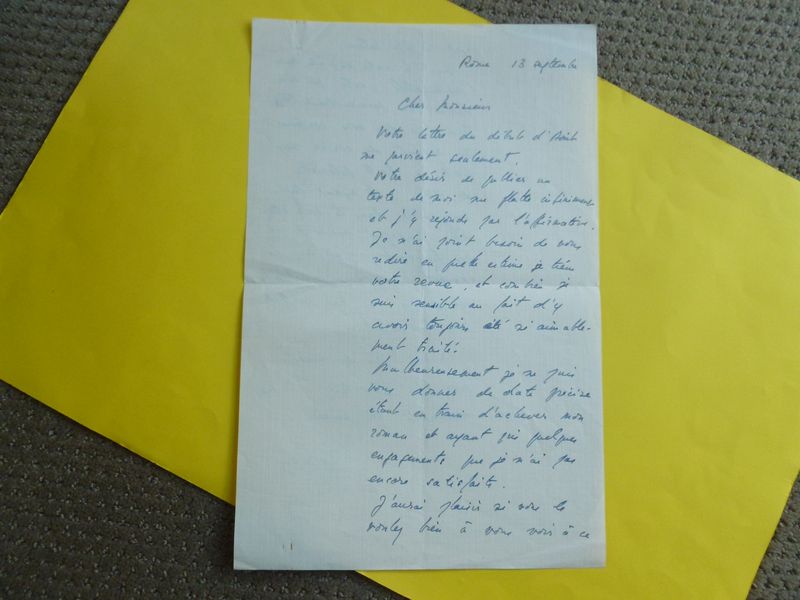 Rome 13 septembre
Cher Monsieur
Votre lettre du début d'Août
me parvient seulement.
Votre désir de publier un
texte de moi me flatte infiniment
et j'y réponds par l'affirmative.
Je n'ai point besoin de vous
redire en quelle estime je tiens
votre revue, et combien je
suis sensible au fait d'y
avoir toujours été si aimable-
ment traité.
Malheureusement je ne puis
vous donner de date précise
étant en train d'achever mon
roman et ayant pris quelques
engagements que je n'ai pas
encore satisfaits.
J'aurai plaisir si vous le
voulez bien à vous voir à ce